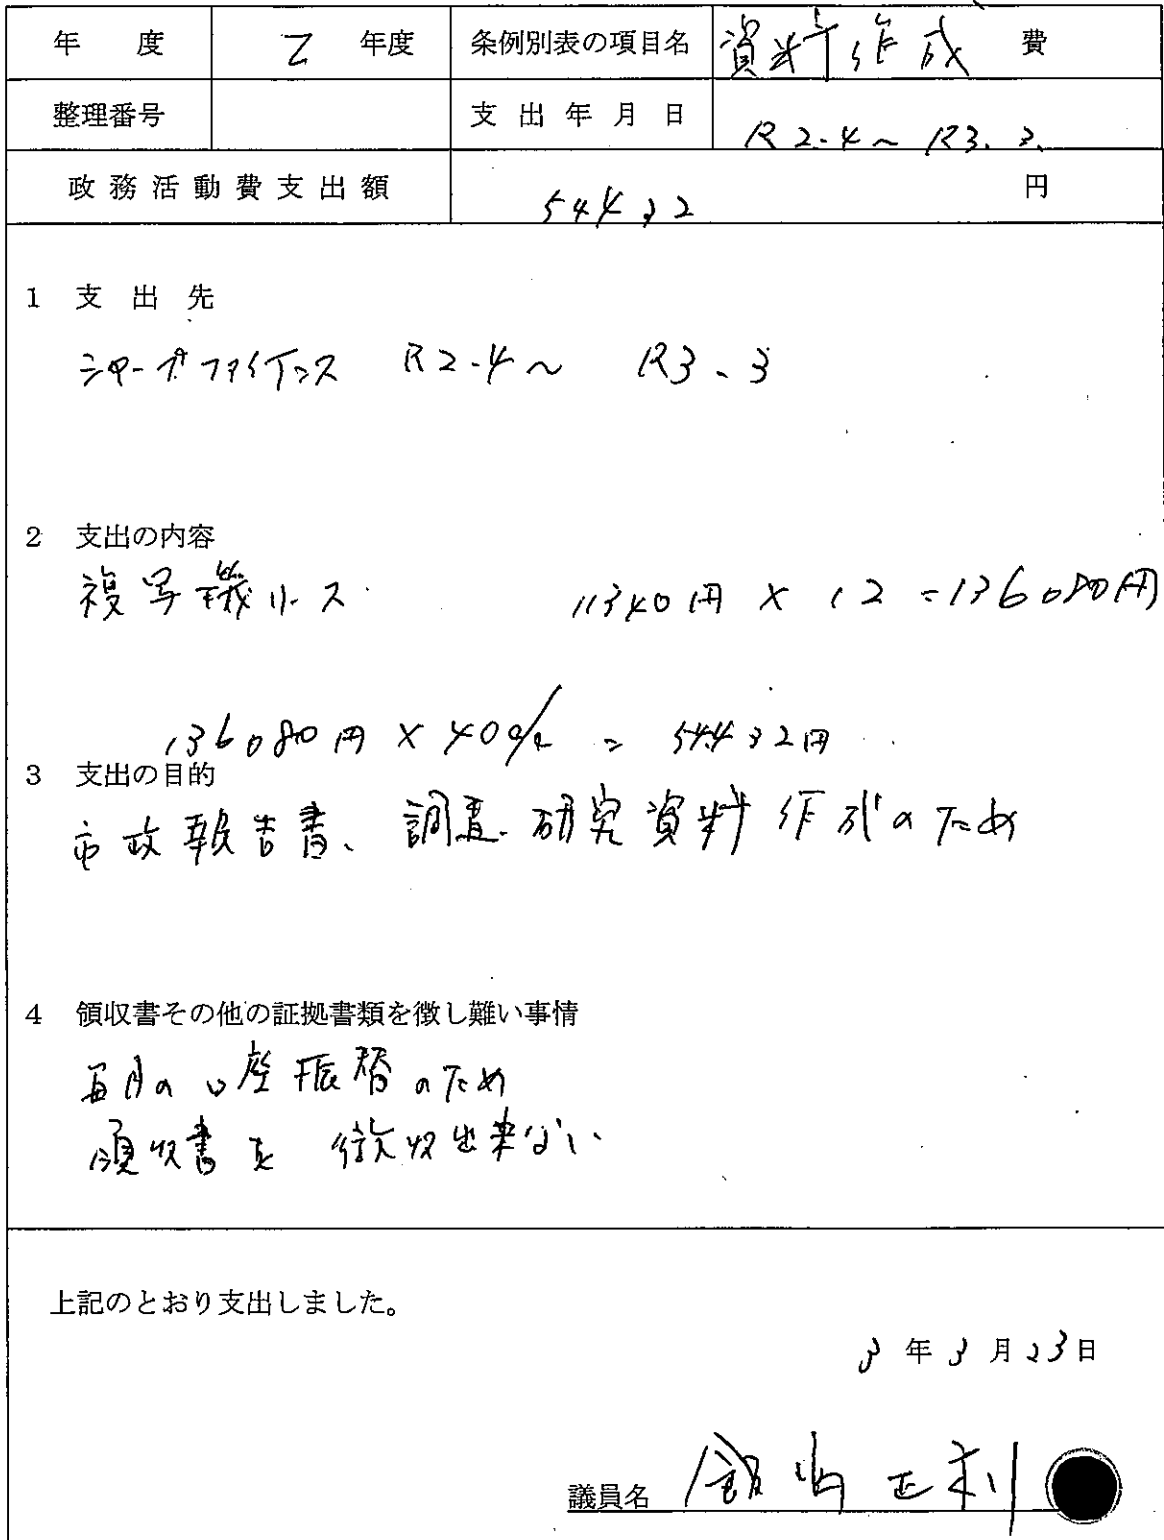 年 度 2 年度 条例別表の項目名 資料作成 費
整理番号 支出年月日 R2.4～R3.3.
政務活動費支出額 54432 円
1 支出先
シャープファイナンス R2.4～ R3.3
2 支出の内容
複写機リース 11340円×12=136080円
136080円×40%=54432円
3 支出の目的
市政報告書、調査・研究資料作成のため
4 領収書その他の証拠書類を徴し難い事情
毎月の口座振替のため
領収書を徴収出来ない
上記のとおり支出しました。
3年3月23日
議員名 正利